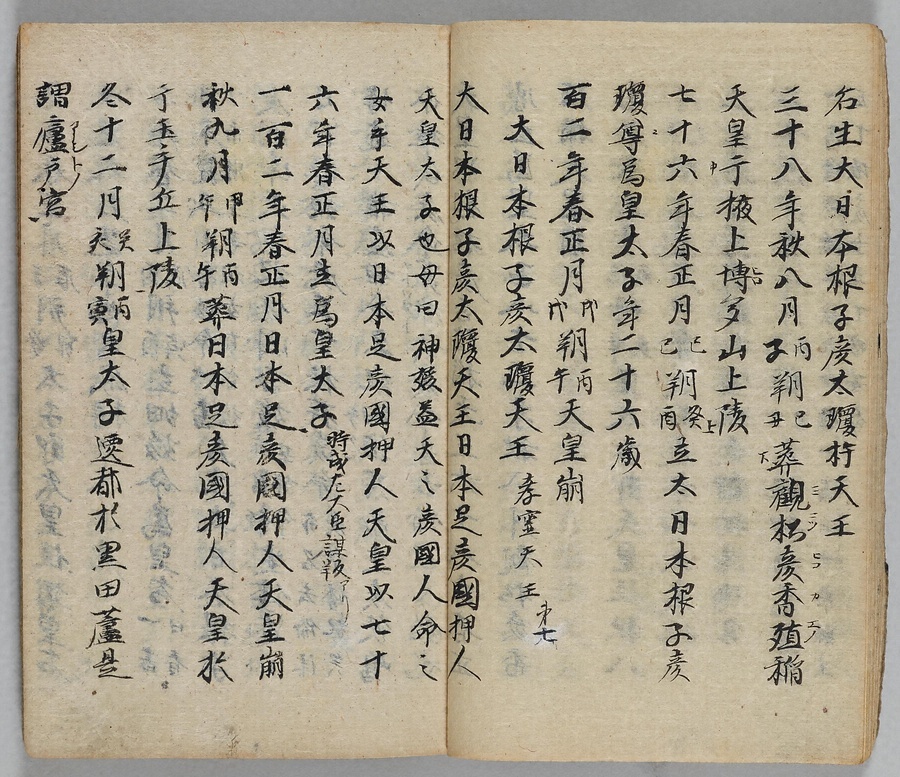 名生大日本根子彦太瓊杵天王
三十八年秋八月丙子朔己丑葬觀松彦香殖稲
天皇于掖上博多山上陵
七十六年春正月己巳朔癸酉立太日本根子彦
瓊尊為皇太子年二十六歳
百二年春正月戊戌朔丙午天皇崩
大日本根子彦太瓊天王 孝霊天王 第七
大日本根子彦太瓊天王日本足彦國押人
天皇太子也母曰神
女手天王以日本足彦國押人天皇以七十
六年春正月立為皇太子
一百二年春正月日本足彦國押人天皇崩
秋九月甲午朔丙午葬日本足彦國押人天皇於
于玉手丘上陵
冬十二月癸亥朔丙寅皇太子遷都於黒田蘆是
謂廬戸宮